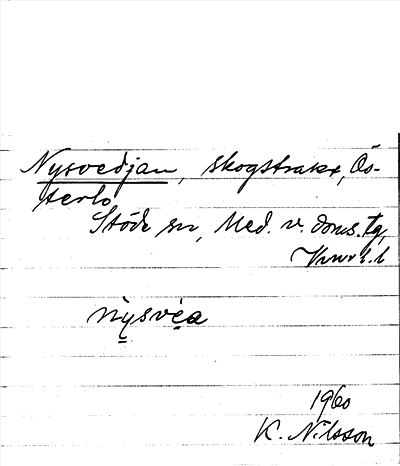 Nysvedjan, skogstrakt, Ös-
terlo
Stöde sn, Med. v. doms. tg,
nysvea
1960
K. Nilsson